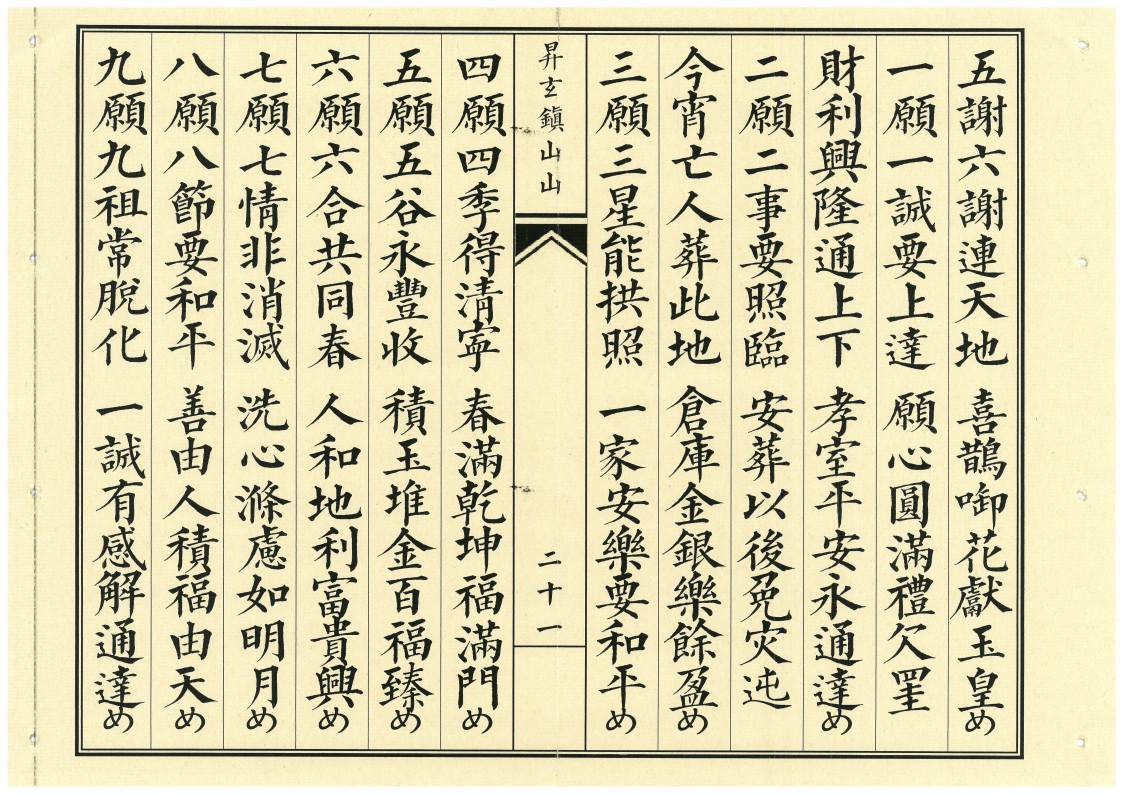 五謝六謝連天地 喜鵲啣花獻玉皇め
一願一誠要上達 願心圓滿禮欠罣
財利興隆通上下 孝室平安永通達め
二願二事要照臨 安葬以後免灾迍
今宵亡人葬此地 倉庫金銀樂餘盈め
三願三星能拱照 一家安樂要和平め
昇玄鎮山山
二十一
四願四季得清寧 春滿乾坤福滿門め
五願五谷永豐收 積玉堆金百福臻め
六願六合共同春 人和地利富貴興め
七願七情非消滅 洗心滌慮如明月め
八願八節要和平 善由人積福由天め
九願九祖常脫化 一誠有感解通達め